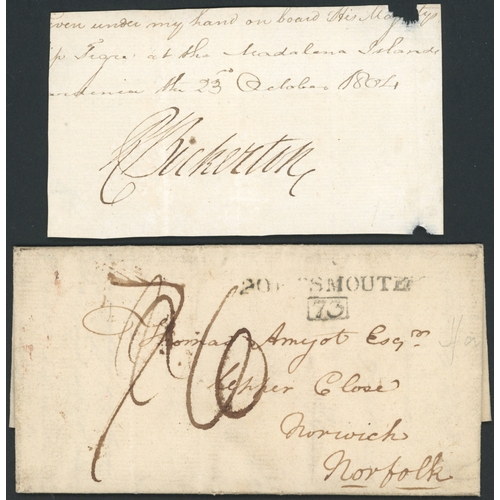 Given under my hand on board His Majestys
Ship Tigre at the Madalena Islands
Sardinia the 23rd October 1804
R Bickerton
PORTSMOUTH
73
Thomas Amyot Esqr
Upper Close
Norwich
Norfolk